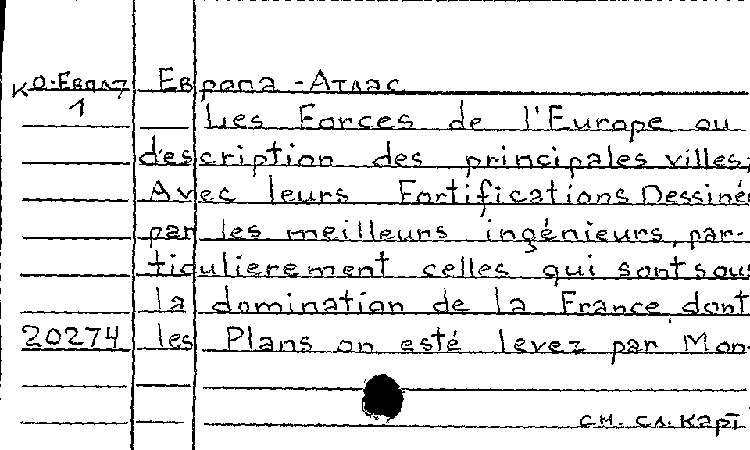 КО-Евол7 Европа - Атлас
1 Les Forces de l'Europe ou
description des principales villes,
Avec leurs Fortifications Dessiné
par les meilleurs ingénieurs, par-
ticulierement celles qui sont sous
la domination de la France dont
20274 les Plans on esté levez par Mon-
см. сл. карт